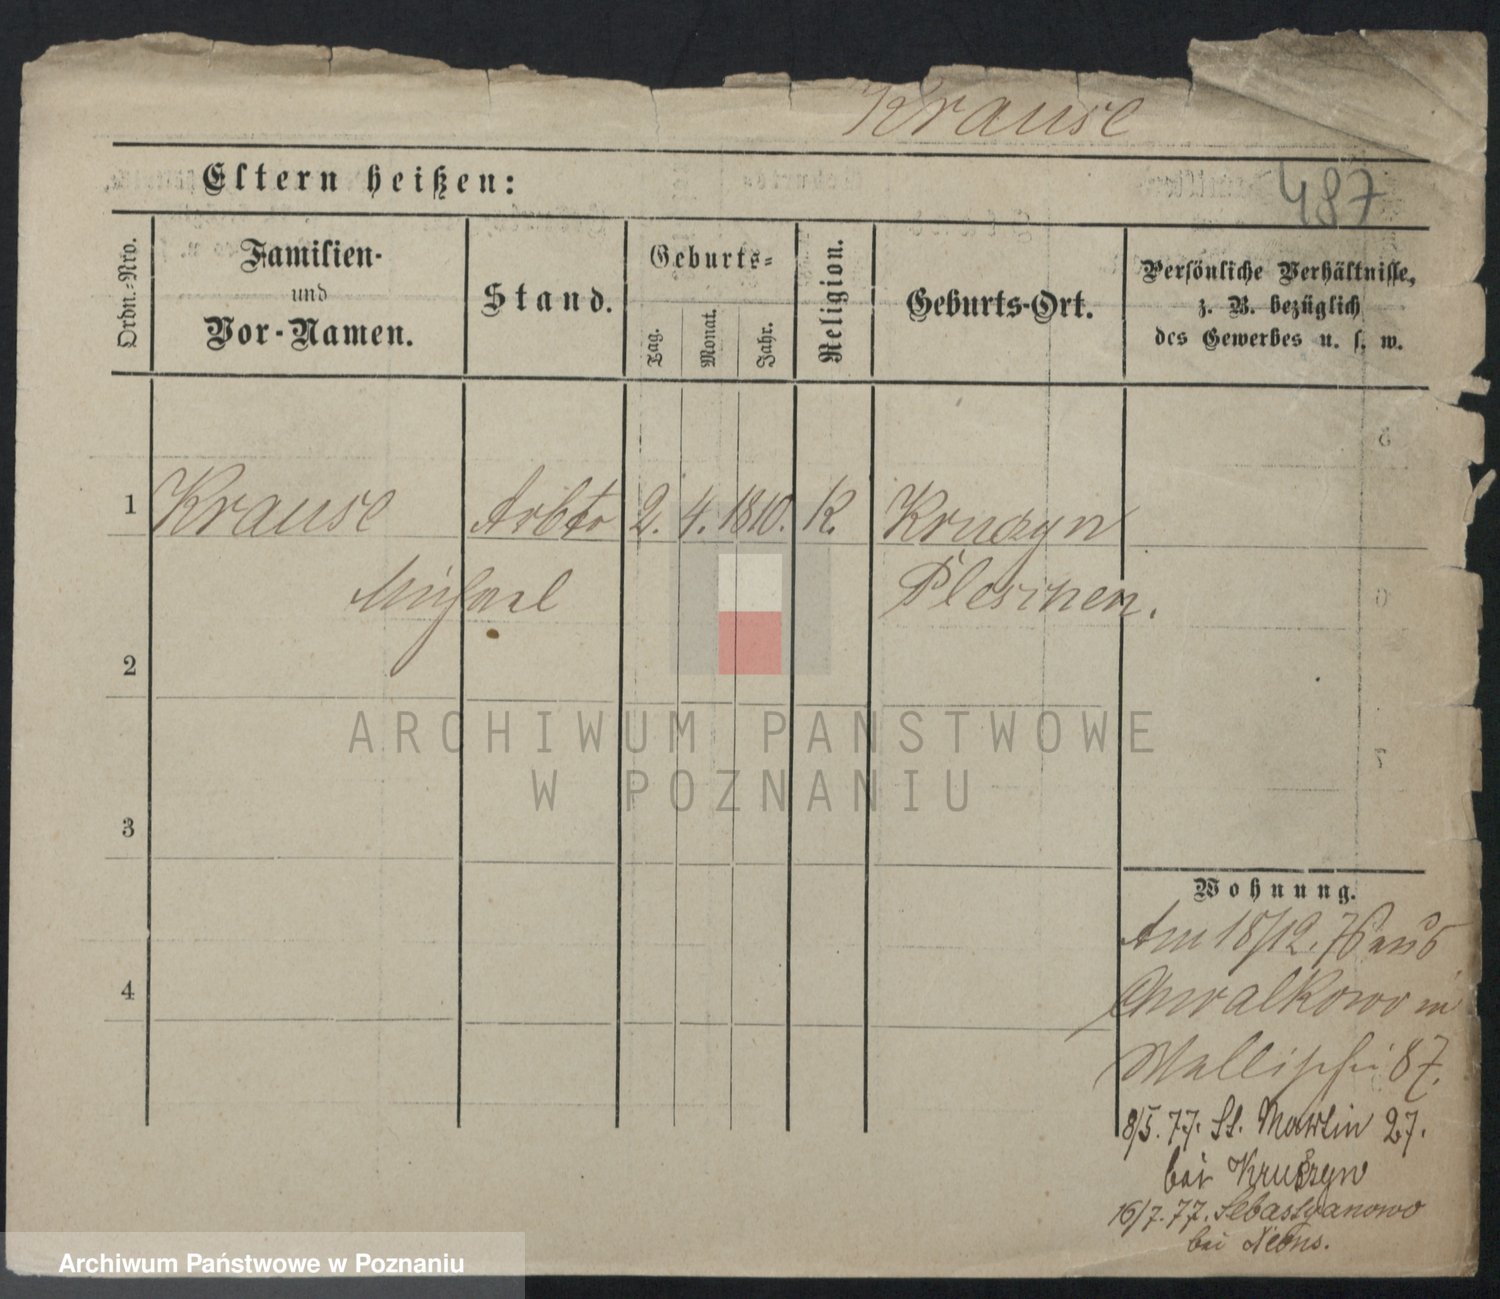 Krause
Eltern heißen:
487
Ordn.-Nro.
Familien-
und
Vor-Namen.
Stand.
Geburts-
Tag.
Monat.
Jahr.
Religion.
Geburts-Ort.
Persönliche Verhältnisse,
z. B. bezüglich
des Gewerbes u. s. w.
1 Krause Arbtr 2. 4. 1810. K. Kruszyn
Michael Pleschen.
2
3
4
ARCHIWUM PAŃSTWOWE
W POZNANIU
Wohnung.
Am 18/12. 76 aus
Chwalkowo in
Wallischei 87.
8/5. 77. St. Martin 27.
bei Kruszyn
16/7. 77. Sebastyanowo
bei
Archiwum Państwowe w Poznaniu